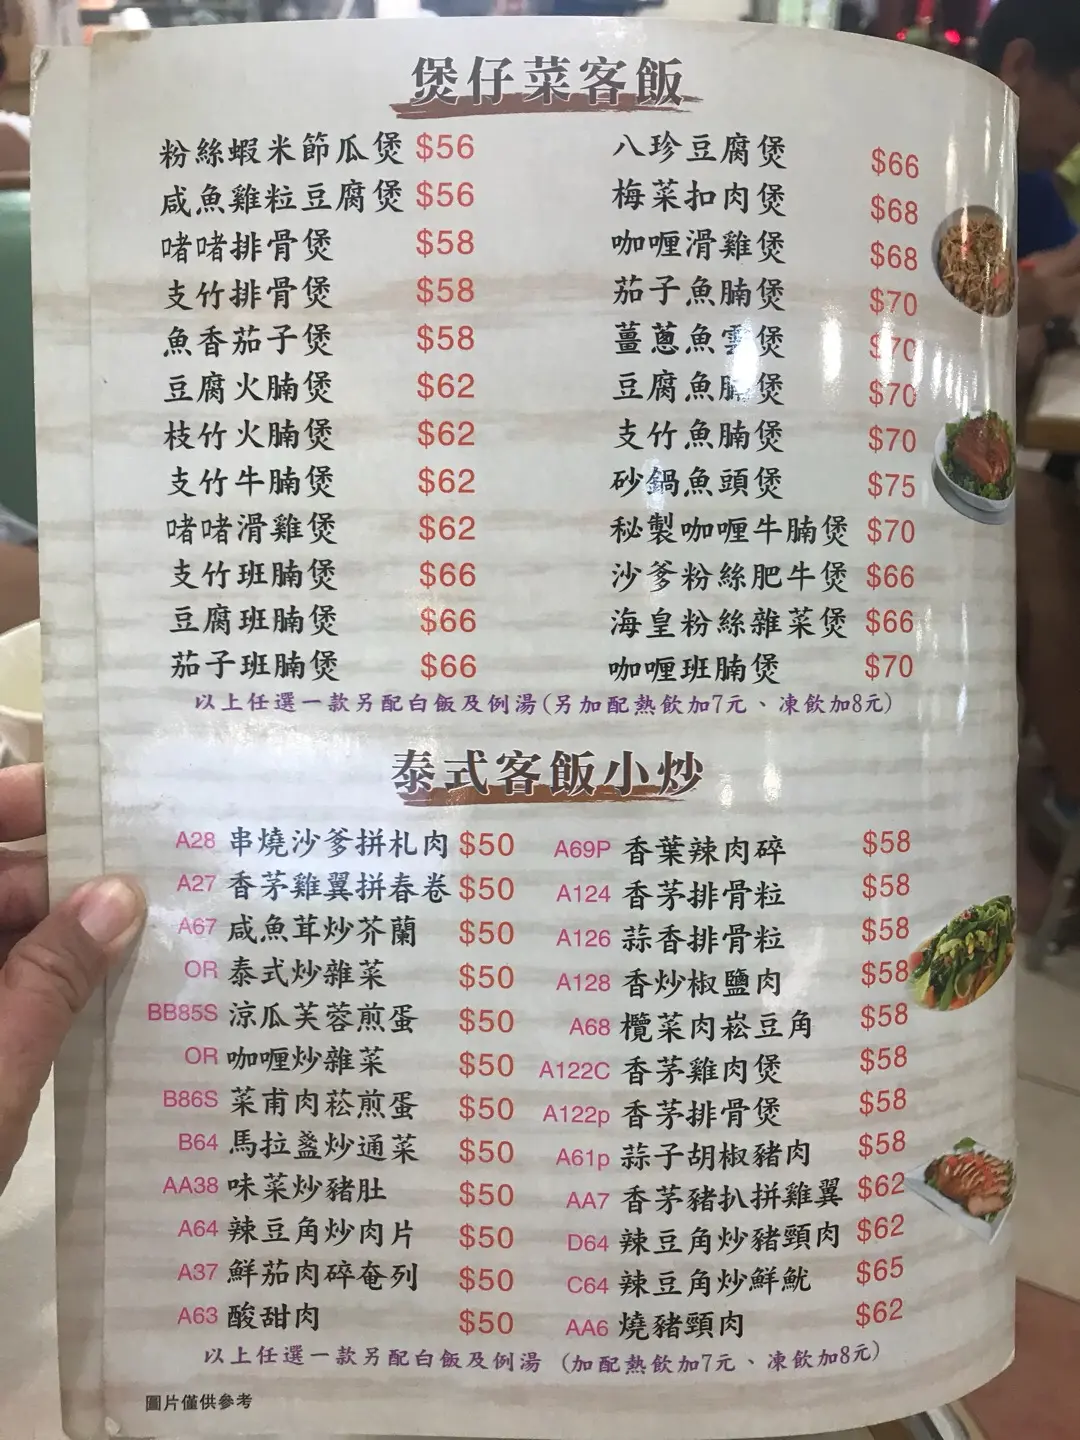 煲仔菜客飯
粉絲蝦米節瓜煲 $56
咸魚雞粒豆腐煲 $56
啫啫排骨煲 $58
支竹排骨煲 $58
魚香茄子煲 $58
豆腐火腩煲 $62
枝竹火腩煲 $62
支竹牛腩煲 $62
啫啫滑雞煲 $62
支竹班腩煲 $66
豆腐班腩煲 $66
茄子班腩煲 $66
八珍豆腐煲 $66
梅菜扣肉煲 $68
咖喱滑雞煲 $68
茄子魚腩煲 $70
薑蔥魚雲煲 $70
豆腐魚腩煲 $70
支竹魚腩煲 $70
砂鍋魚頭煲 $75
秘製咖喱牛腩煲 $70
沙爹粉絲肥牛煲 $66
海皇粉絲雜菜煲 $66
咖喱班腩煲 $70
以上任選一款另配白飯及例湯(另加配熱飲加7元、凍飲加8元)
泰式客飯小炒
A28 串燒沙爹拼札肉 $50
A27 香茅雞翼拼春卷 $50
A67 咸魚茸炒芥蘭 $50
OR 泰式炒雜菜 $50
BB85S 涼瓜芙蓉煎蛋 $50
OR 咖喱炒雜菜 $50
B86S 菜甫肉菘煎蛋 $50
B64 馬拉盞炒通菜 $50
AA38 味菜炒豬肚 $50
A64 辣豆角炒肉片 $50
A37 鮮茄肉碎奄列 $50
A63 酸甜肉 $50
A69P 香葉辣肉碎 $58
A124 香茅排骨粒 $58
A126 蒜香排骨粒 $58
A128 香炒椒鹽肉 $58
A68 欖菜肉崧豆角 $58
A122C 香茅雞肉煲 $58
A122p 香茅排骨煲 $58
A61p 蒜子胡椒豬肉 $58
AA7 香茅豬扒拼雞翼 $62
D64 辣豆角炒豬頸肉 $62
C64 辣豆角炒鮮魷 $65
AA6 燒豬頸肉 $62
以上任選一款另配白飯及例湯 (加配熱飲加7元、凍飲加8元)
圖片僅供參考